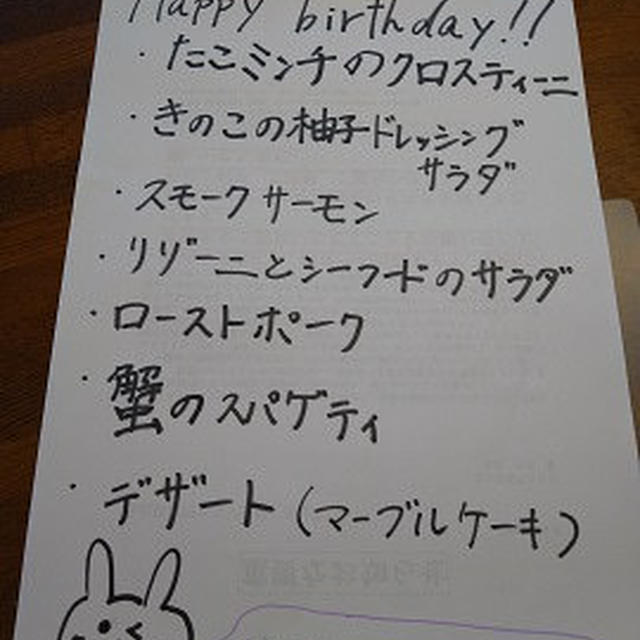 Happy birthday!!
・たこミンチのクロスティーニ
・きのこの柚子ドレッシング
サラダ
・スモークサーモン
・リゾーニとシーフードのサラダ
・ローストポーク
・蟹のスパゲティ
・デザート（マーブルケーキ）